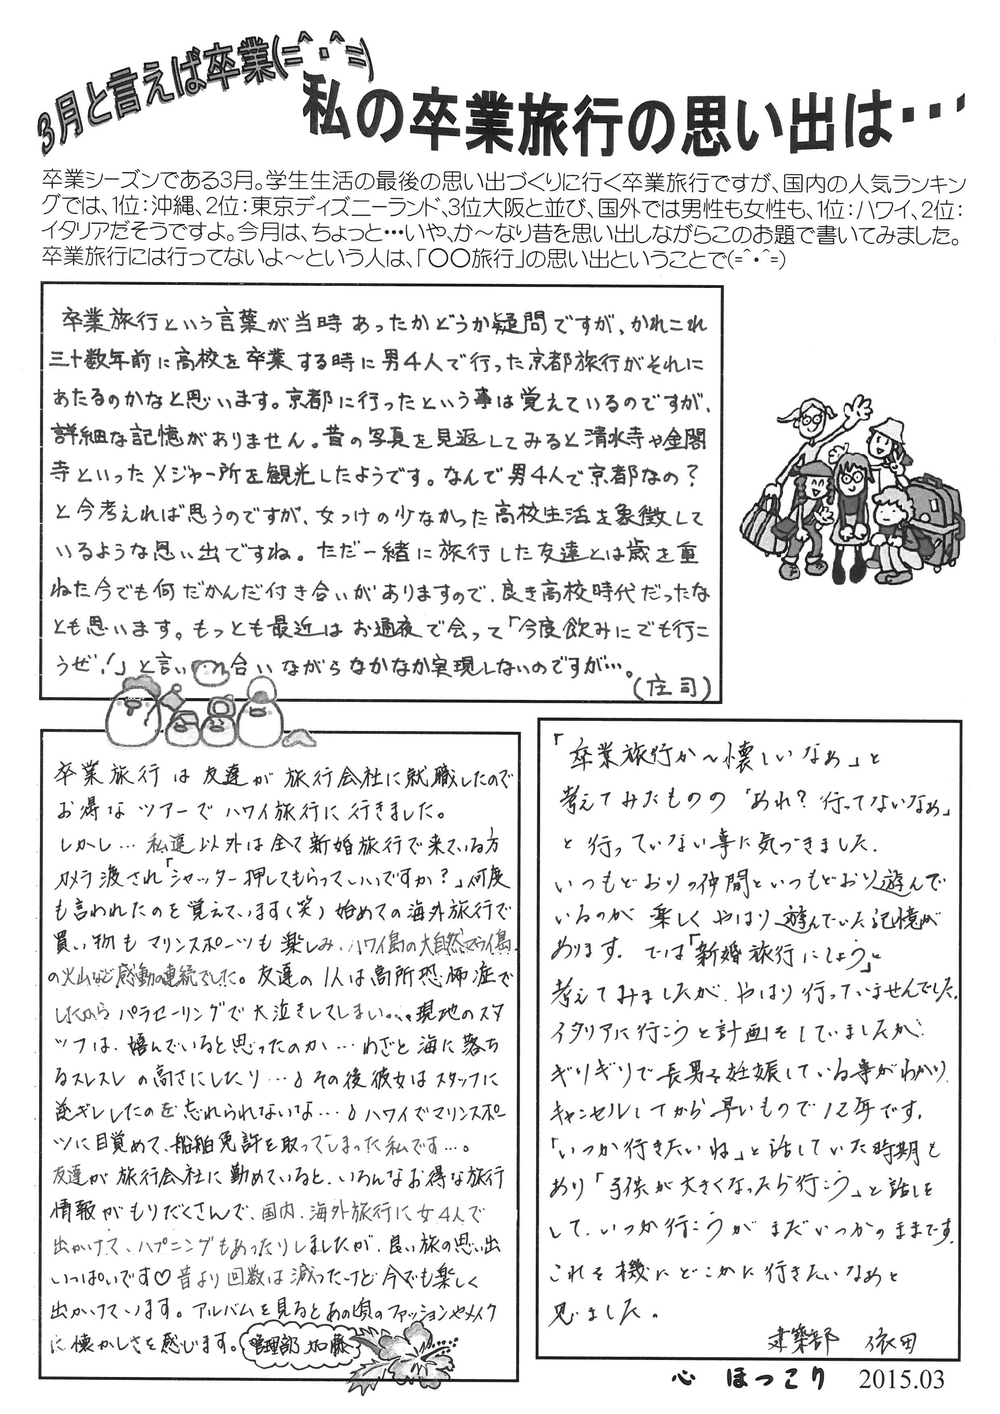 3月と言えば卒業(=^・^=)
私の卒業旅行の思い出は・・・
卒業シーズンである3月。学生生活の最後の思い出づくりに行く卒業旅行ですが、国内の人気ランキン
グでは、1位：沖縄、2位：東京ディズニーランド、3位大阪と並び、国外では男性も女性も、1位：ハワイ、2位：
イタリアだそうですよ。今月は、ちょっと…いや、か～なり昔を思い出しながらこのお題で書いてみました。
卒業旅行には行ってないよ～という人は、「〇〇旅行」の思い出ということで(=^・^=)
卒業旅行という言葉が当時あったかどうか疑問ですが、かれこれ
三十数年前に高校を卒業する時に男4人で行った京都旅行がそれに
あたるのかなと思います。京都に行ったという事は覚えているのですが、
詳細な記憶がありません。昔の写真を見返してみると清水寺や金閣
寺といったメジャー所を観光したようです。なんで男4人で京都なの？
と今考えれば思うのですが、女っけの少なかった高校生活を象徴して
いるような思い出ですね。ただ一緒に旅行した友達とは歳を重
ねた今でも何だかんだ付き合いがありますので、良き高校時代だったな
とも思います。もっとも最近はお通夜で会って「今度飲みにでも行こ
うぜ！」と言い合いながらなかなか実現しないのですが…。
(庄司)
卒業旅行は友達が旅行会社に就職したので
お得なツアーでハワイ旅行に行きました。
しかし…私達以外は全て新婚旅行で来ている方
カメラ渡され「シャッター押してもらっていいですか？」何度
も言われたのを覚えています(笑)始めての海外旅行で
買い物もマリンスポーツも楽しみ、ハワイ島の大自然でワイ島
の火山など感動の連続でした。友達の1人は高所恐怖症で
したからパラセーリングで大泣きしてしまい…現地のスタ
ッフは、嬉んでいると思ったのか…わざと海に落ち
るスレスレの高さにしたり…♪その後彼女はスタッフに
逆ギレしたのを忘れられないな…♪ハワイでマリンスポー
ツに目覚めて、船舶免許を取ってしまった私です…。
友達が旅行会社に勤めていると、いろんなお得な旅行
情報がもりだくさんで、国内、海外旅行に女4人で
出かけて、ハプニングもあったりしましたが、良い旅の思い出
いっぱいです♡昔より回数は減ったけど今でも楽しく
出かけています。アルバムを見るとあの頃のファッションやメイク
に懐かしさを感じます。
管理部 加藤
「卒業旅行か～懐しいなぁ」と
考えてみたものの「あれ？行ってないなぁ」
と行っていない事に気づきました。
いつもどおりの仲間といつもどおり遊んで
いるのが楽しくやはり遊んでいた記憶が
あります。では「新婚旅行にしよう」と
考えてみましたが、やはり行っていませんでした。
イタリアに行こうと計画をしていましたが、
ギリギリで長男を妊娠している事がわかり、
キャンセルしてから早いもので12年です。
「いつか行きたいね」と話していた時期も
あり「子供が大きくなったら行こう」と話しを
して、いつか行こうがまだいつかのままです。
これを機にどこかに行きたいなぁと
思いました。
建築部 依田
心 ほっこり 2015.03